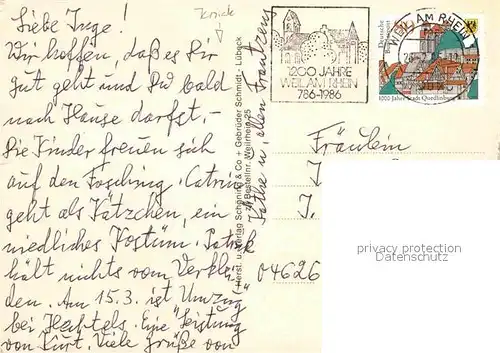 Liebe Inge!
Wir hoffen, daß es Dir
gut geht und Du bald
nach Hause darfst. –
Die Kinder freuen sich
auf den Fasching. Catrin
geht als Kätzchen, ein
niedliches Kostüm. Patrik
hält nichts vom Verklei
den. Am 15.3. ist Umzug
bei Hechtels. Eine "Leistung"
von Kurt. Viele Grüße von
Käthe u. allen
knick
(Herst. u. Verlag Schöning & Co + Gebrüder Schmidt - Lübeck
Bestellnr. Weilrhein 25
1200 JAHRE
WEIL AM RHEIN
786-1986
WEIL AM RHEIN
Deutsche Bundespost
1000 Jahre Stadt Quedlinburg
Fräulein
I
I.
04626
privacy protection
Datenschutz